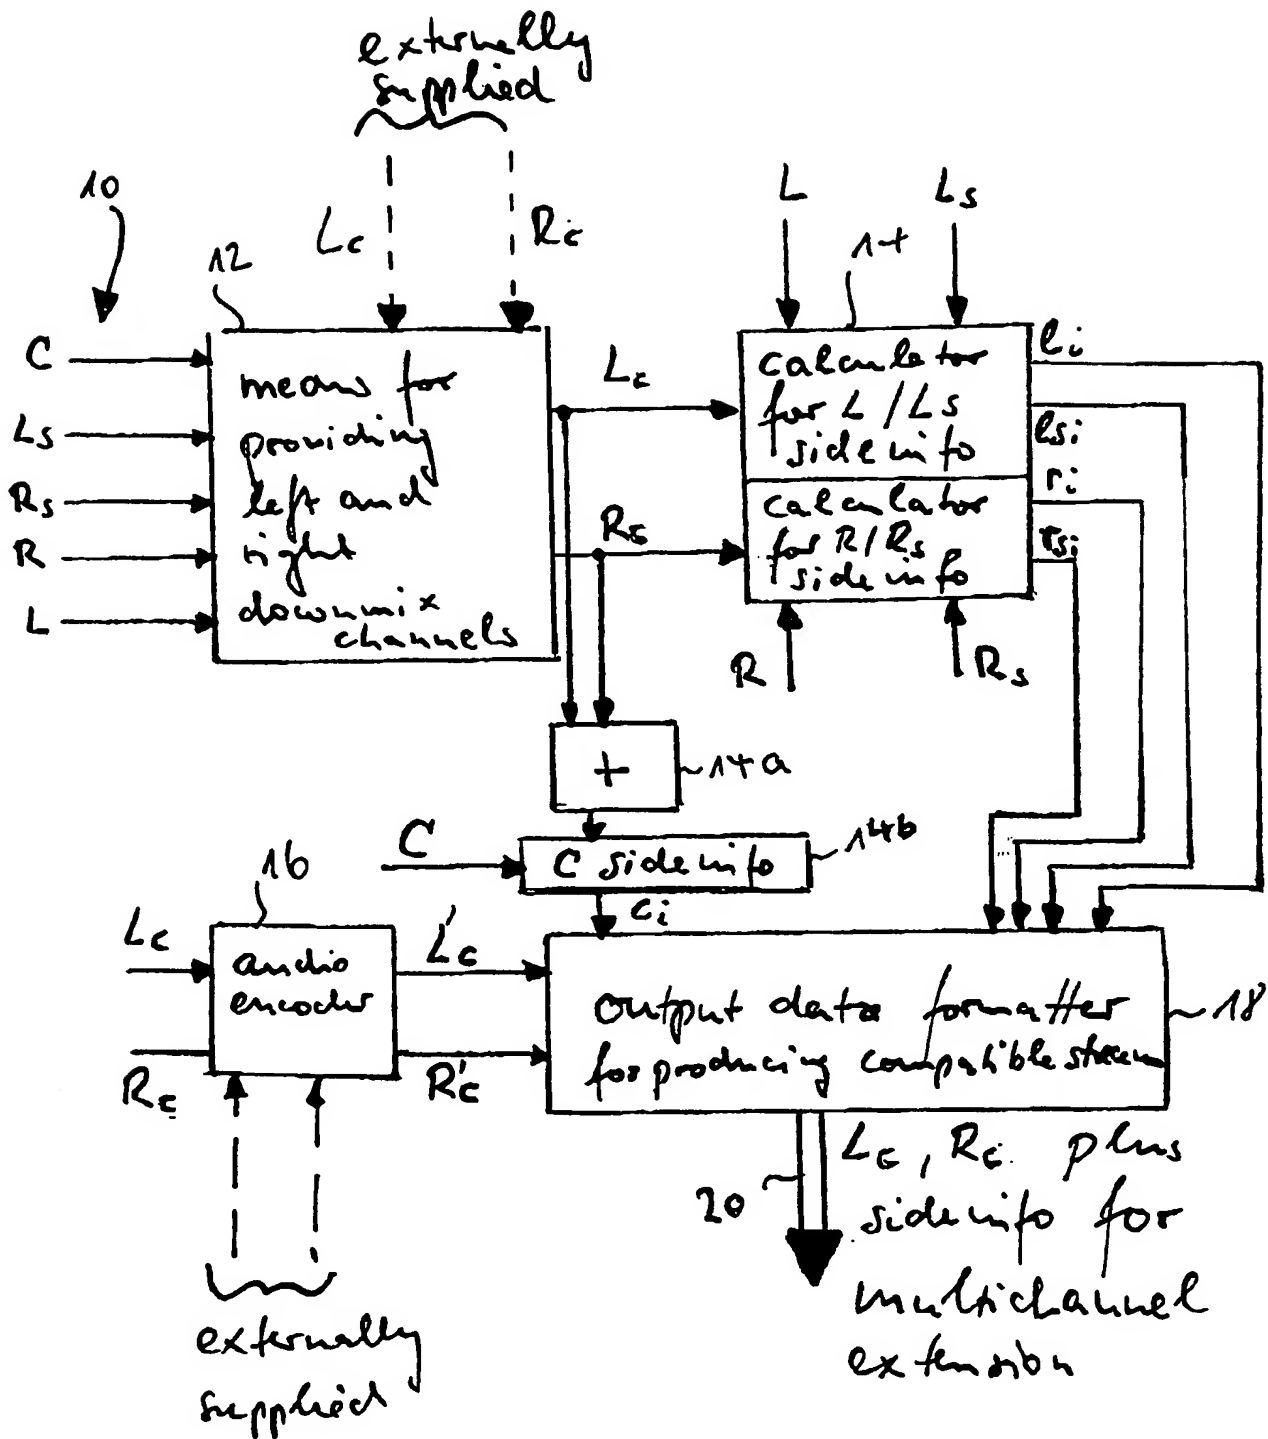 externally
supplied
10
Lc
Rc
L
Ls
12
14
C
Ls
Rs
R
L
means for
providing
left and
right
downmix
channels
Lc
Rc
calculator
for L / Ls
side info
calculator
for R / Rs
side info
li
lsi
ri
rsi
R
Rs
+
14a
C
C side info
14b
ci
16
Lc
Rc
audio
encoder
L'c
R'c
output data formatter
for producing compatible stream
18
20
Lc, Rc plus
side info for
multichannel
extension
externally
supplied